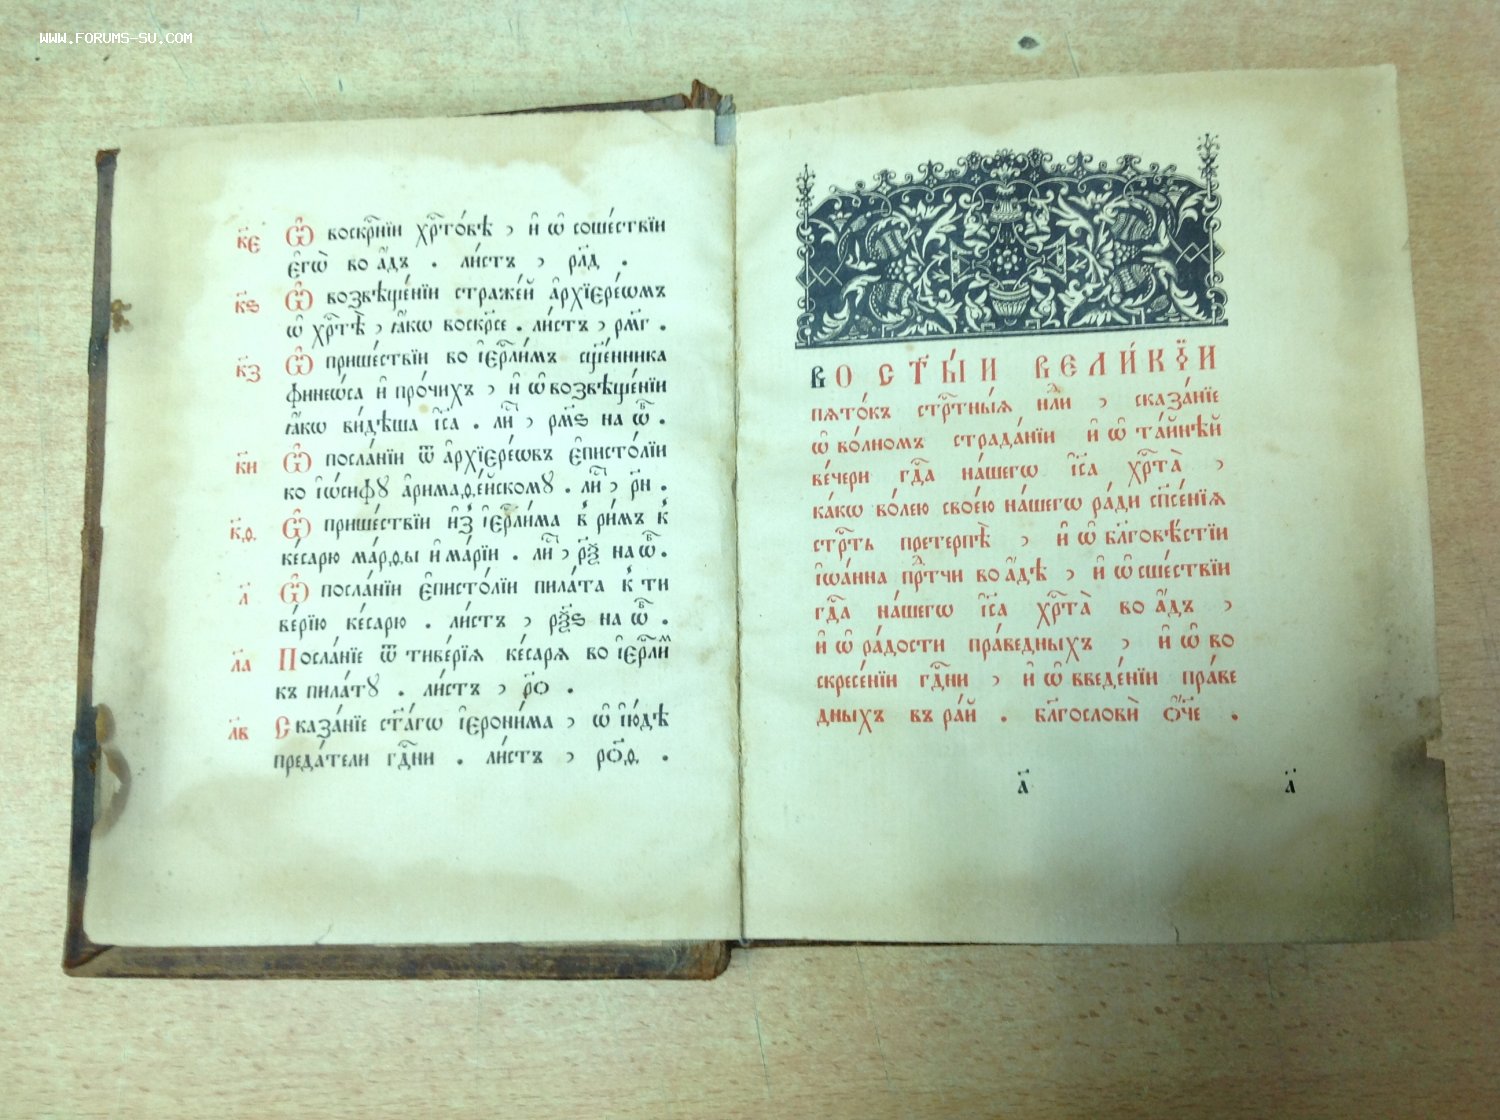 www.forums-su.com
к҃є Ѡ҆ воскр҇нїи хр҇то́вѣ , и҆ ѡ҆ соше́ствїи
є҆гѡ̀ во а҆́дъ . ли́стъ , рл҃д .
к҃ѕ Ѡ҆ возвѣще́нїи страже́й а҆рхїєре́ѡмъ
ѡ҆ хр҇тѣ̀ , ꙗ҆́кѡ воскр҃се . ли́стъ , рм҃г .
к҃з Ѡ҆ прише́ствїи во і҆ер҇ли́мъ сщ҃е́нника
финео́са и҆ про́чихъ , и҆ ѡ҆ возвѣще́нїи
ꙗ҆́кѡ ви́дѣша і҆и҃са . лиⷭ҇ , рм҃ѕ на ѡ҆бⷪ҇ .
к҃и Ѡ҆ посла́нїи ѿ а҆рхїєре́ѡвъ є҆писто́лїи
ко і҆ѡ́сифꙋ а҆римаѳе́йскомꙋ . лиⷭ҇ , рн҃ .
к҃ѳ Ѡ҆ прише́ствїи и҆з̾ і҆ер҇ли́ма в̾ ри́мъ к̾
ке́сарю ма́рѳы и҆ ма́рїи . лиⷭ҇ , рѯ҃ на ѡ҆бⷪ҇ .
л҃ Ѡ҆ посла́нїи є҆писто́лїи пила́та к̾ ти
ве́рїю ке́сарю . ли́стъ , рѯ҃ѕ на ѡ҆бⷪ҇ .
л҃а Посла́нїе ѿ тиве́рїѧ ке́сарѧ во і҆ер҇ли́м
къ пила́тꙋ . ли́стъ , ро҃ .
л҃в Сказа́нїе ст҃а́гѡ і҆ерони́ма , ѡ҆ і҆ю́дѣ
преда́тели гдⷭ҇ни . ли́стъ , ро҃ѳ .
Во ст҃ы́и вели́кїи
пѧто́къ стр҇тны́ѧ недⷧ҇и , сказа́нїе
ѡ҆ во́лномъ страда́нїи и҆ ѡ҆ та́йнѣй
ве́чери гдⷭ҇а на́шегѡ і҆и҃са хр҇та̀ ,
ка́кѡ во́лею свое́ю на́шегѡ ра́ди сп҃се́нїѧ
стр҇ть претерпѣ̀ , и҆ ѡ҆ бл҃говѣ́стїи
і҆ѡа́нна прⷣтчи во а҆́дѣ , и҆ ѡ҆ сше́ствїи
гдⷭ҇а на́шегѡ і҆и҃са хр҇та̀ во а҆́дъ ,
и҆ ѡ҆ ра́дости пра́ведныхъ , и҆ ѡ҆ во
скресе́нїи гдⷭ҇ни , и҆ ѡ҆ введе́нїи пра́ве
дныхъ въ ра́й . бл҃гослови̾ о҆́ч҃е .
а҃ а҃